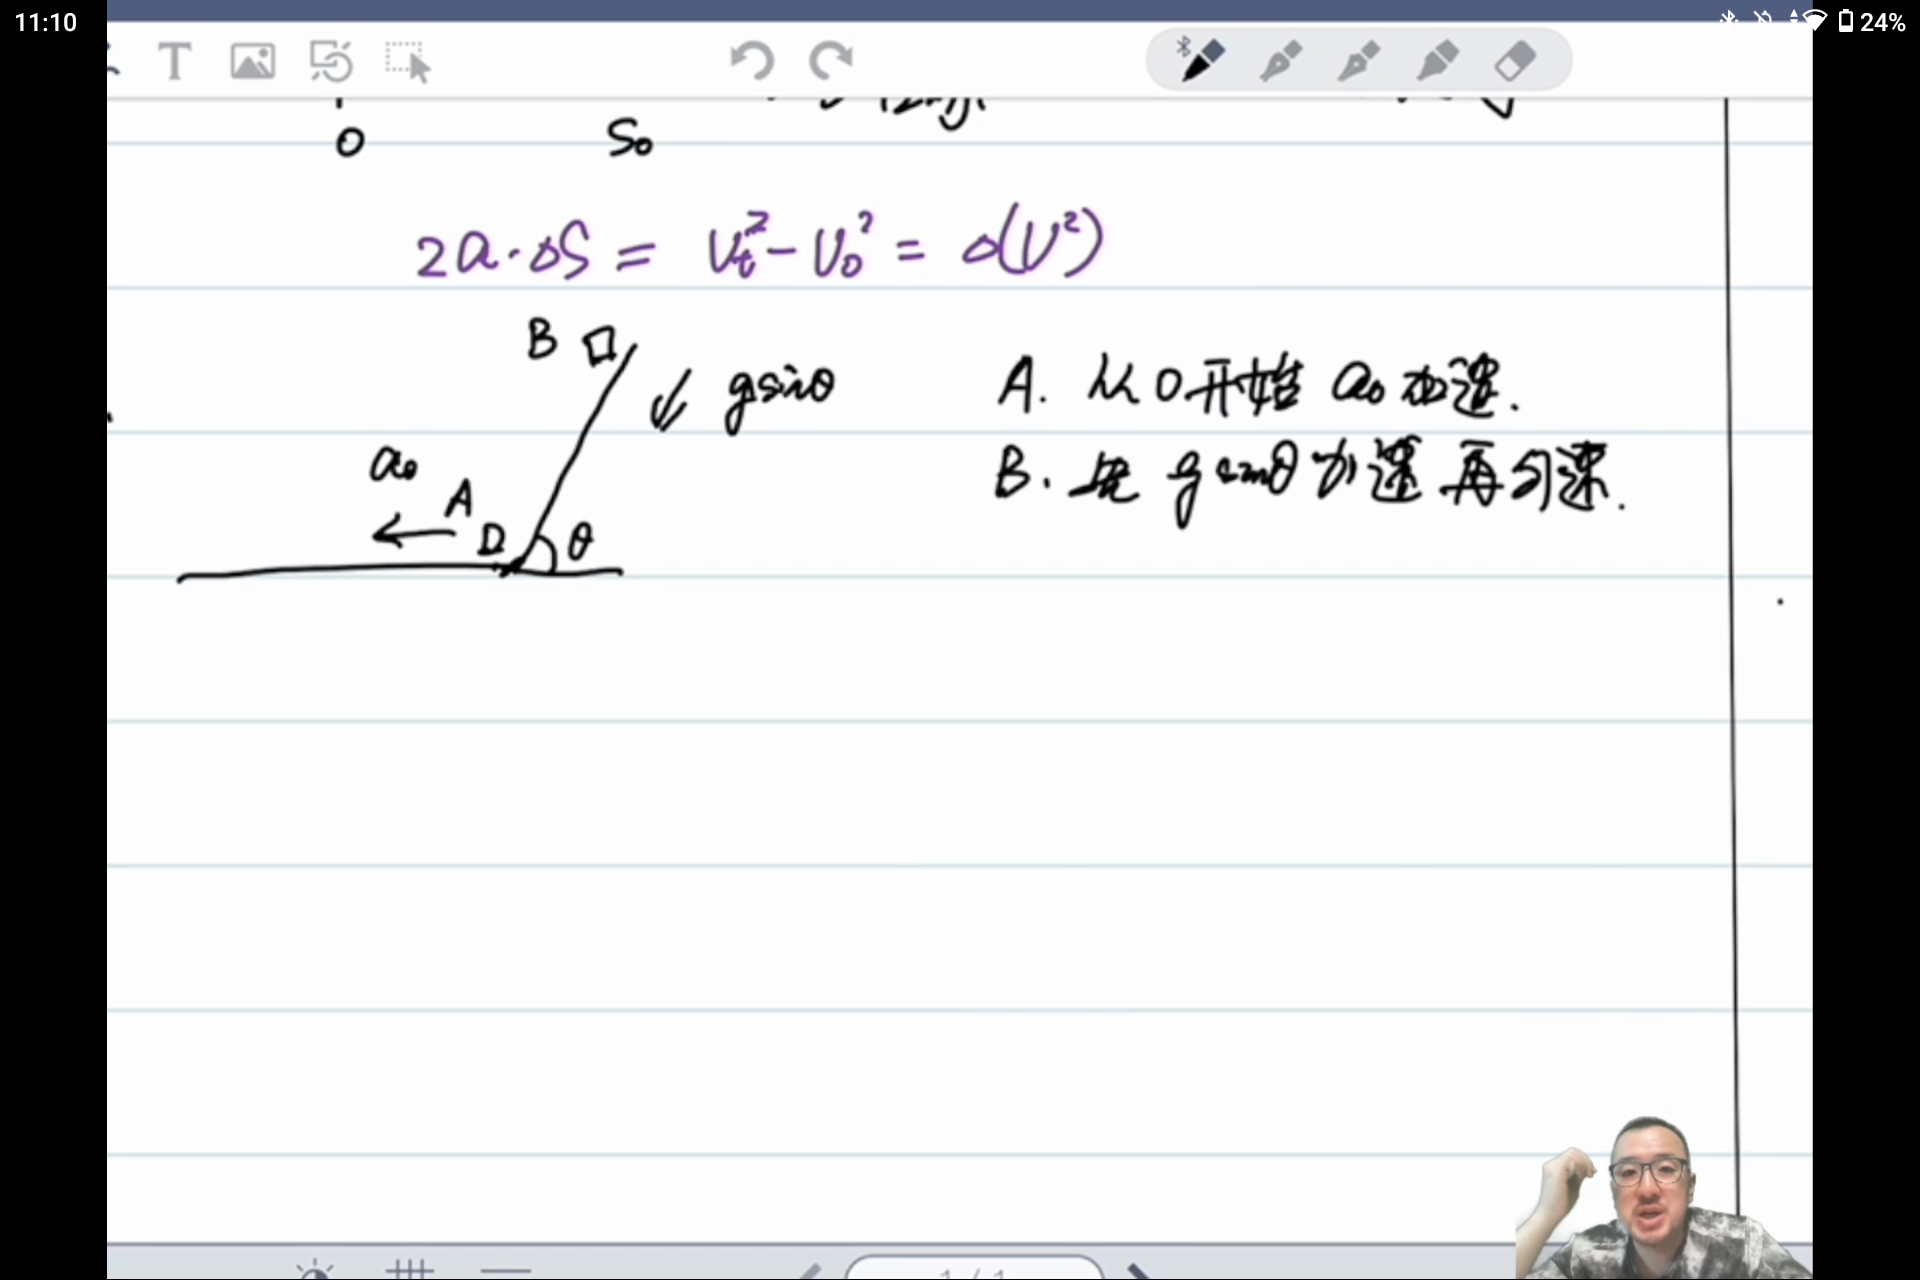 11:10
24%
T
0 S₀
2a·ΔS = Vt² - V₀² = Δ(V²)
B
gsinθ
A. 从0开始 a₀ 加速.
B. 先 gsinθ 加速 再匀速.
a₀
A
θ
1 / 1